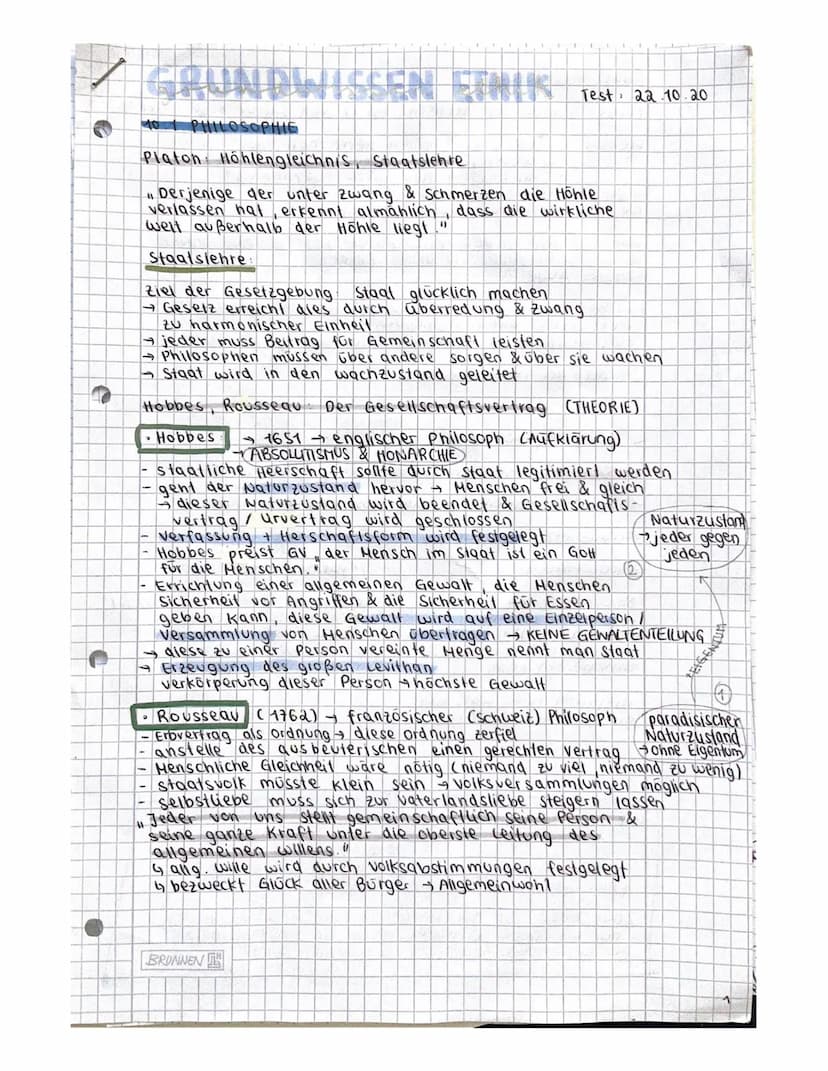 GRUNDWISSEN ETHIK
Test: 22.10.20
10.1 PHILOSOPHIE
Platon: Höhlengleichnis, Staatslehre
„Derjenige der unter Zwang & Schmerzen die Höhle
verlassen hat, erkennt almählich, dass die wirkliche
Welt außerhalb der Höhle liegt."
Staatslehre:
Ziel der Gesetzgebung: Staat glücklich machen
→ Gesetz erreicht dies durch Überredung & Zwang
zu harmonischer Einheit
→ jeder muss Beitrag für Gemeinschaft leisten
→ Philosophen müssen über andere sorgen & über sie wachen
→ Staat wird in den Wachzustand geleitet
Hobbes, Rousseau: Der Gesellschaftsvertrag (THEORIE)
· Hobbes: → 1651 → englischer Philosoph (Aufklärung)
→ ABSOLUTISMUS & MONARCHIE
- staatliche Heerschaft sollte durch Staat legitimiert werden
- geht der Naturzustand hervor → Menschen frei & gleich
→ dieser Naturzustand wird beendet & Gesellschafts-
vertrag / Urvertrag wird geschlossen
- Verfassung + Herschaftsform wird festgelegt
- Hobbes preist GV „der Mensch im Staat ist ein Gott
für die Menschen."
- Errichtung einer allgemeinen Gewalt, die Menschen
Sicherheit vor Angriffen & die Sicherheit für Essen
geben kann, diese Gewalt wird auf eine Einzelperson /
Versammlung von Menschen übertragen → KEINE GEWALTENTEILUNG
→ diese zu einer Person vereinte Menge nennt man Staat
→ Erzeugung des großen Levithan
verkörperung dieser Person → höchste Gewalt
Naturzustand
→ jeder gegen
jeden
②
EIGENTUM
①
paradisischer
Naturzustand
→ ohne Eigentum
· Rousseau (1762) → französischer (Schweiz) Philosoph
- Erbvertrag als Ordnung → diese Ordnung zerfiel
- anstelle des ausbeuterischen einen gerechten Vertrag
- Menschliche Gleichheit wäre nötig (niemand zu viel, niemand zu wenig)
- Staatsvolk müsste klein sein → Volksversammlungen möglich
- Selbstliebe muss sich zur Vaterlandsliebe steigern lassen
„Jeder von uns stellt gemeinschaftlich seine Person &
seine ganze Kraft unter die oberste Leitung des
allgemeinen Willens."
↳ allg. Wille wird durch Volksabstimmungen festgelegt
↳ bezweckt Glück aller Bürger → Allgemeinwohl
BRUNNEN
1